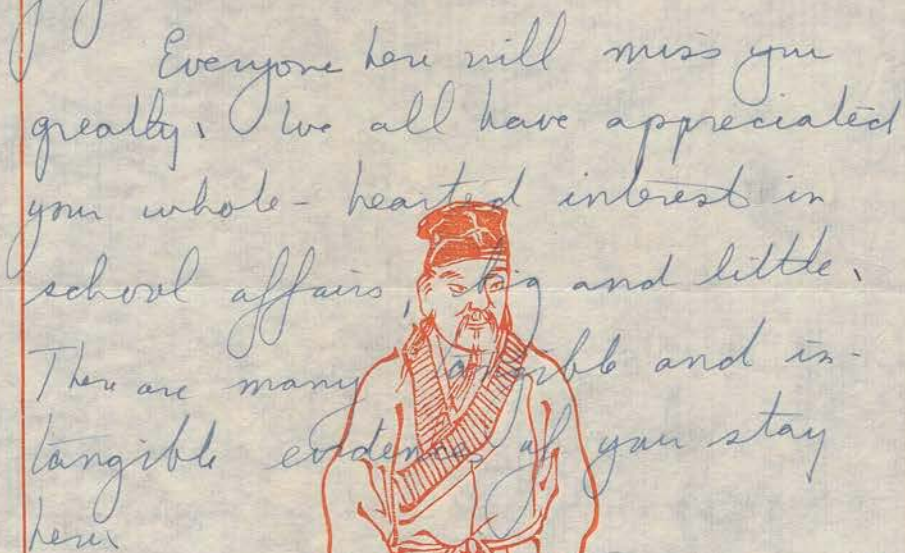 Everyone here will miss you
greatly. We all have appreciated
your whole-hearted interest in
school affairs, big and little.
There are many tangible and in-
tangible evidences of your stay
here